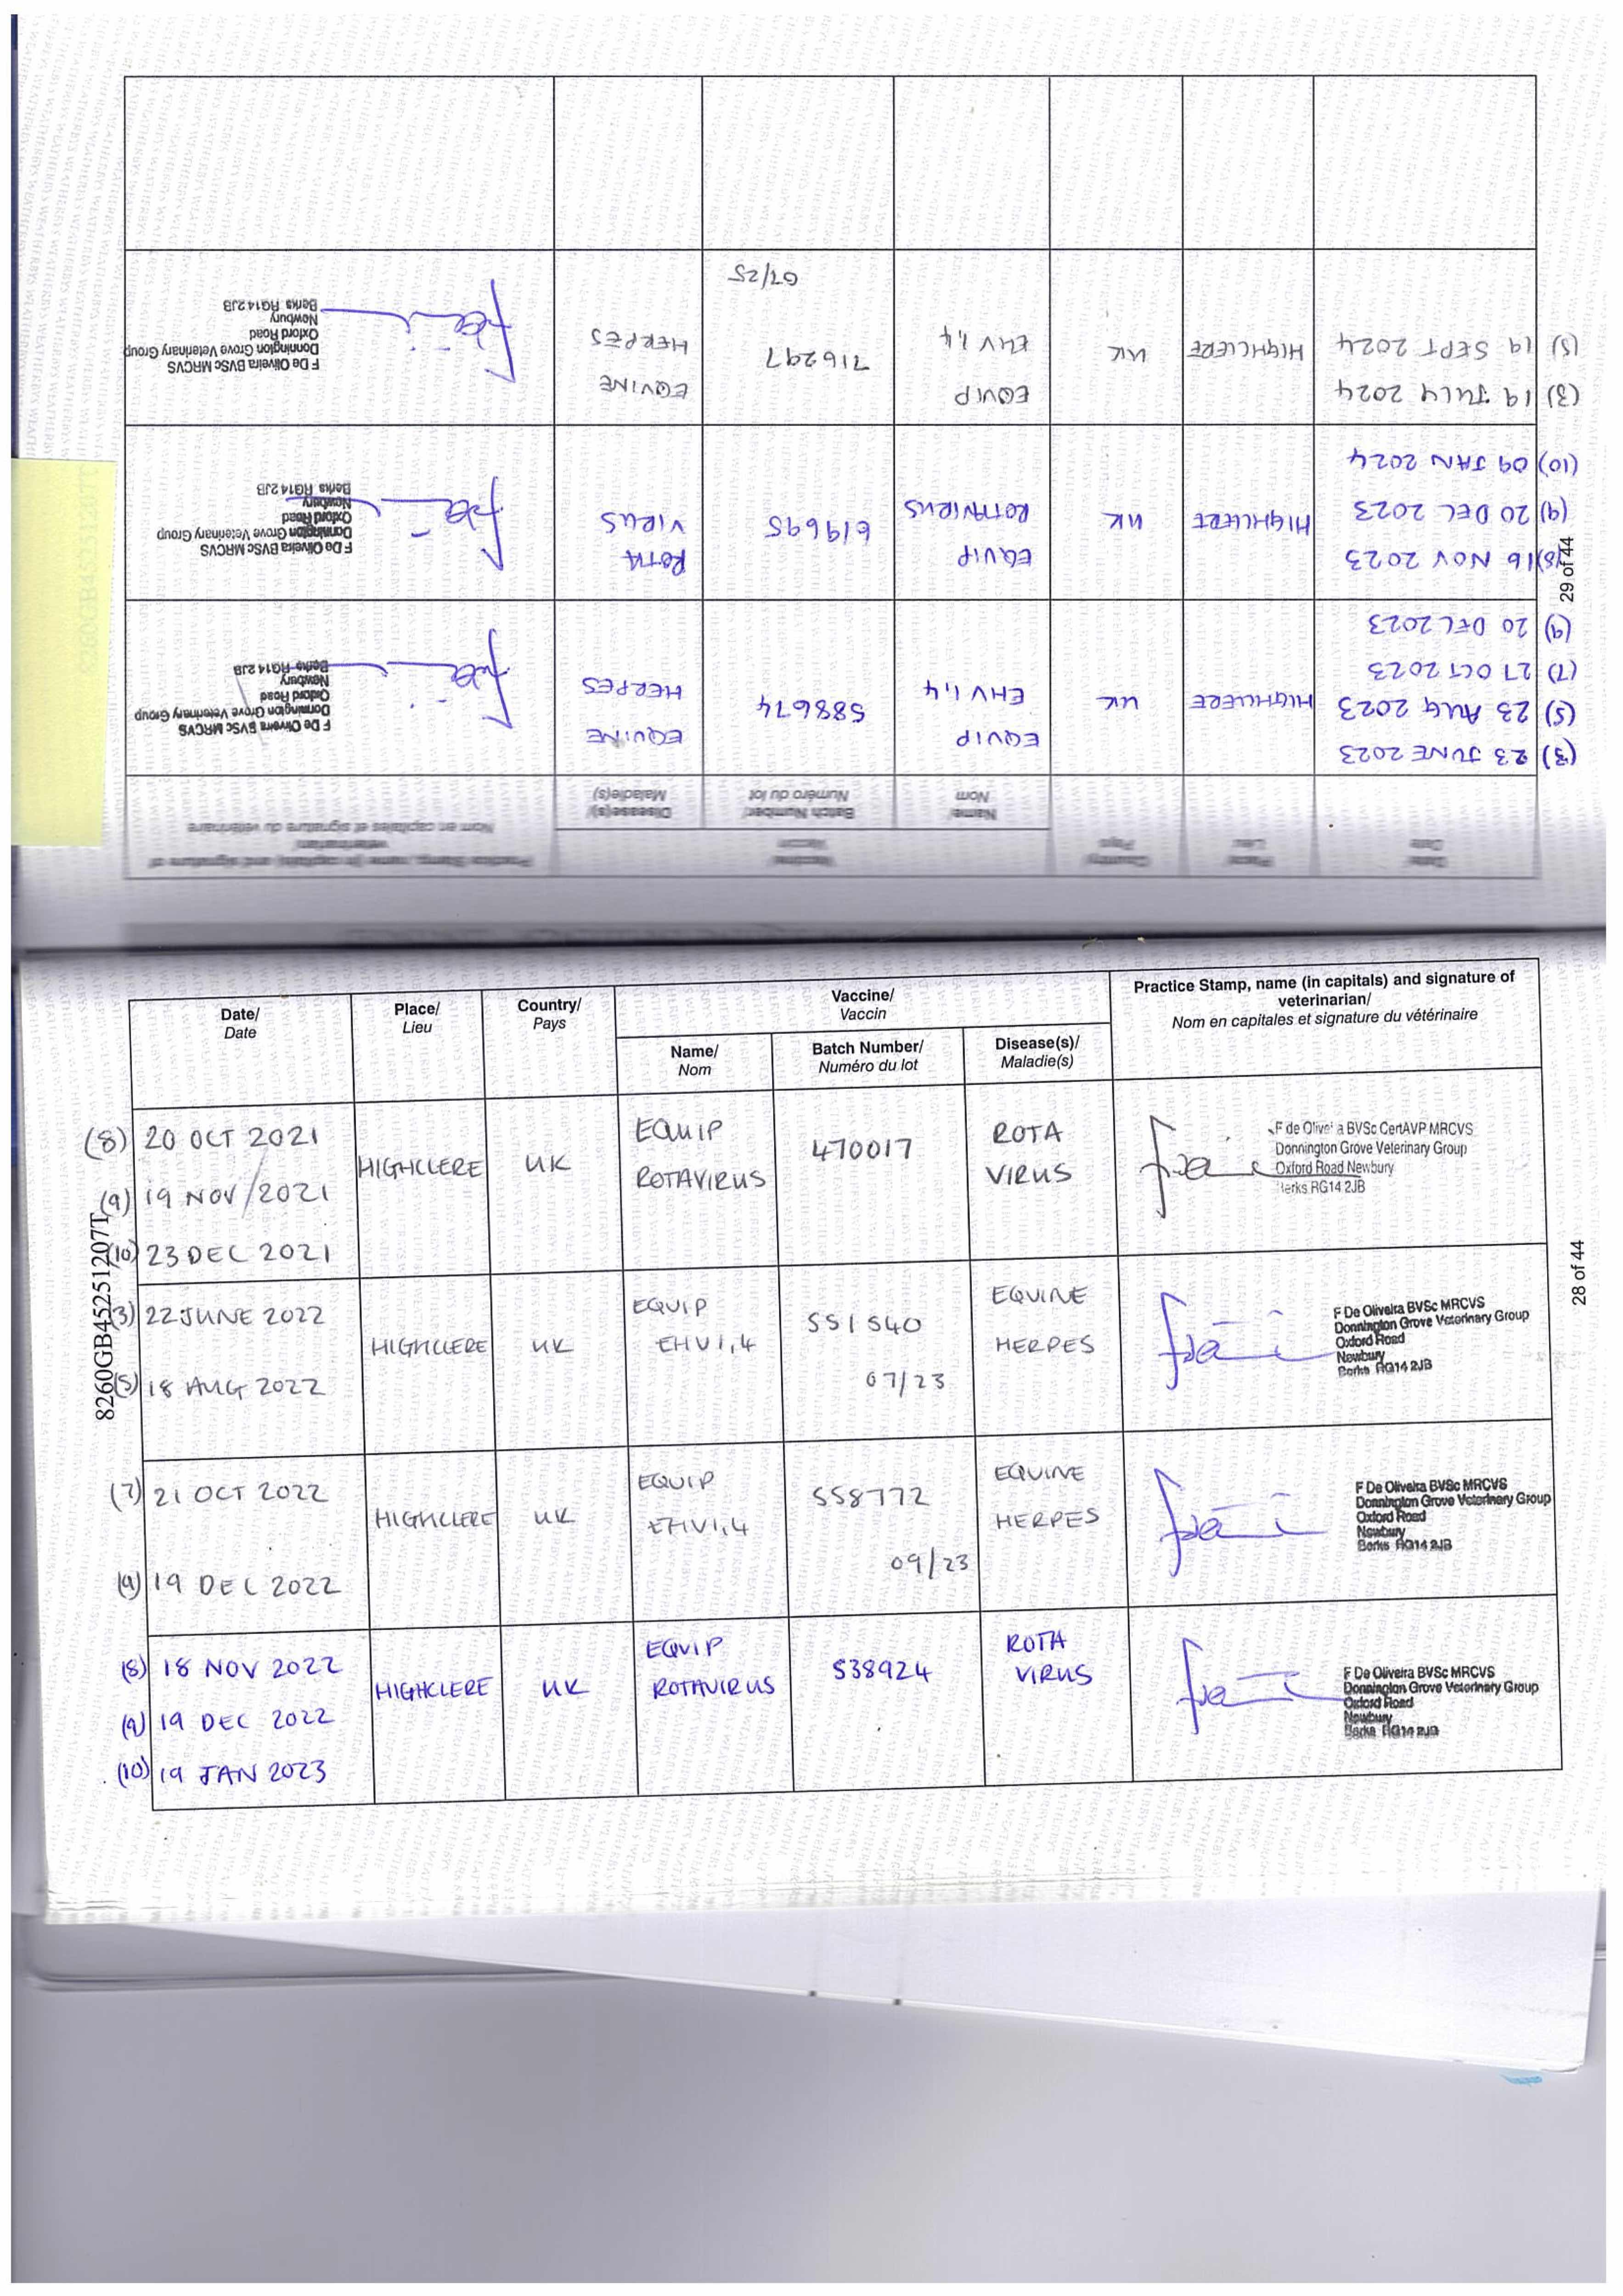 Date/
Date
Place/
Lieu
Country/
Pays
Vaccine/
Vaccin
Name/
Nom
Batch Number/
Numéro du lot
Disease(s)/
Maladie(s)
Practice Stamp, name (in capitals) and signature of
veterinarian/
Nom en capitales et signature du vétérinaire
(8) 20 OCT 2021
(9) 19 NOV 2021
(10) 23 DEC 2021
HIGHCLERE
UK
EQUIP
ROTAVIRUS
470017
ROTA
VIRUS
F de Olivei a BVSc CertAVP MRCVS
Donnington Grove Veterinary Group
Oxford Road Newbury
Berks RG14 2JB
(3) 22 JUNE 2022
(5) 18 AUG 2022
HIGHCLERE
UK
EQUIP
EHV1,4
551540
07/23
EQUINE
HERPES
F De Oliveira BVSc MRCVS
Donnington Grove Veterinary Group
Oxford Road
Newbury
Berks RG14 2JB
(7) 21 OCT 2022
(9) 19 DEC 2022
HIGHCLERE
UK
EQUIP
EHV1,4
558772
09/23
EQUINE
HERPES
F De Oliveira BVSc MRCVS
Donnington Grove Veterinary Group
Oxford Road
Newbury
Berks RG14 2JB
(8) 18 NOV 2022
(9) 19 DEC 2022
(10) 19 JAN 2023
HIGHCLERE
UK
EQUIP
ROTAVIRUS
538924
ROTA
VIRUS
F De Oliveira BVSc MRCVS
Donnington Grove Veterinary Group
Oxford Road
Newbury
Berks RG14 2JB
8260GB45251207T
28 of 44
Date/
Date
Place/
Lieu
Country/
Pays
Vaccine/
Vaccin
Name/
Nom
Batch Number/
Numéro du lot
Disease(s)/
Maladie(s)
Practice Stamp, name (in capitals) and signature of
veterinarian/
Nom en capitales et signature du vétérinaire
(3) 23 JUNE 2023
(5) 23 AUG 2023
(7) 27 OCT 2023
(9) 20 DEC 2023
HIGHCLERE
UK
EQUIP
EHV 1,4
588674
EQUINE
HERPES
F De Oliveira BVSc MRCVS
Donnington Grove Veterinary Group
Oxford Road
Newbury
Berks RG14 2JB
(8) 16 NOV 2023
(9) 20 DEC 2023
(10) 09 JAN 2024
HIGHCLERE
UK
EQUIP
ROTAVIRUS
619695
ROTA
VIRUS
F De Oliveira BVSc MRCVS
Donnington Grove Veterinary Group
Oxford Road
Newbury
Berks RG14 2JB
(3) 19 JULY 2024
(5) 19 SEPT 2024
HIGHCLERE
UK
EQUIP
EHV 1,4
716297
07/25
EQUINE
HERPES
F De Oliveira BVSc MRCVS
Donnington Grove Veterinary Group
Oxford Road
Newbury
Berks RG14 2JB
29 of 44